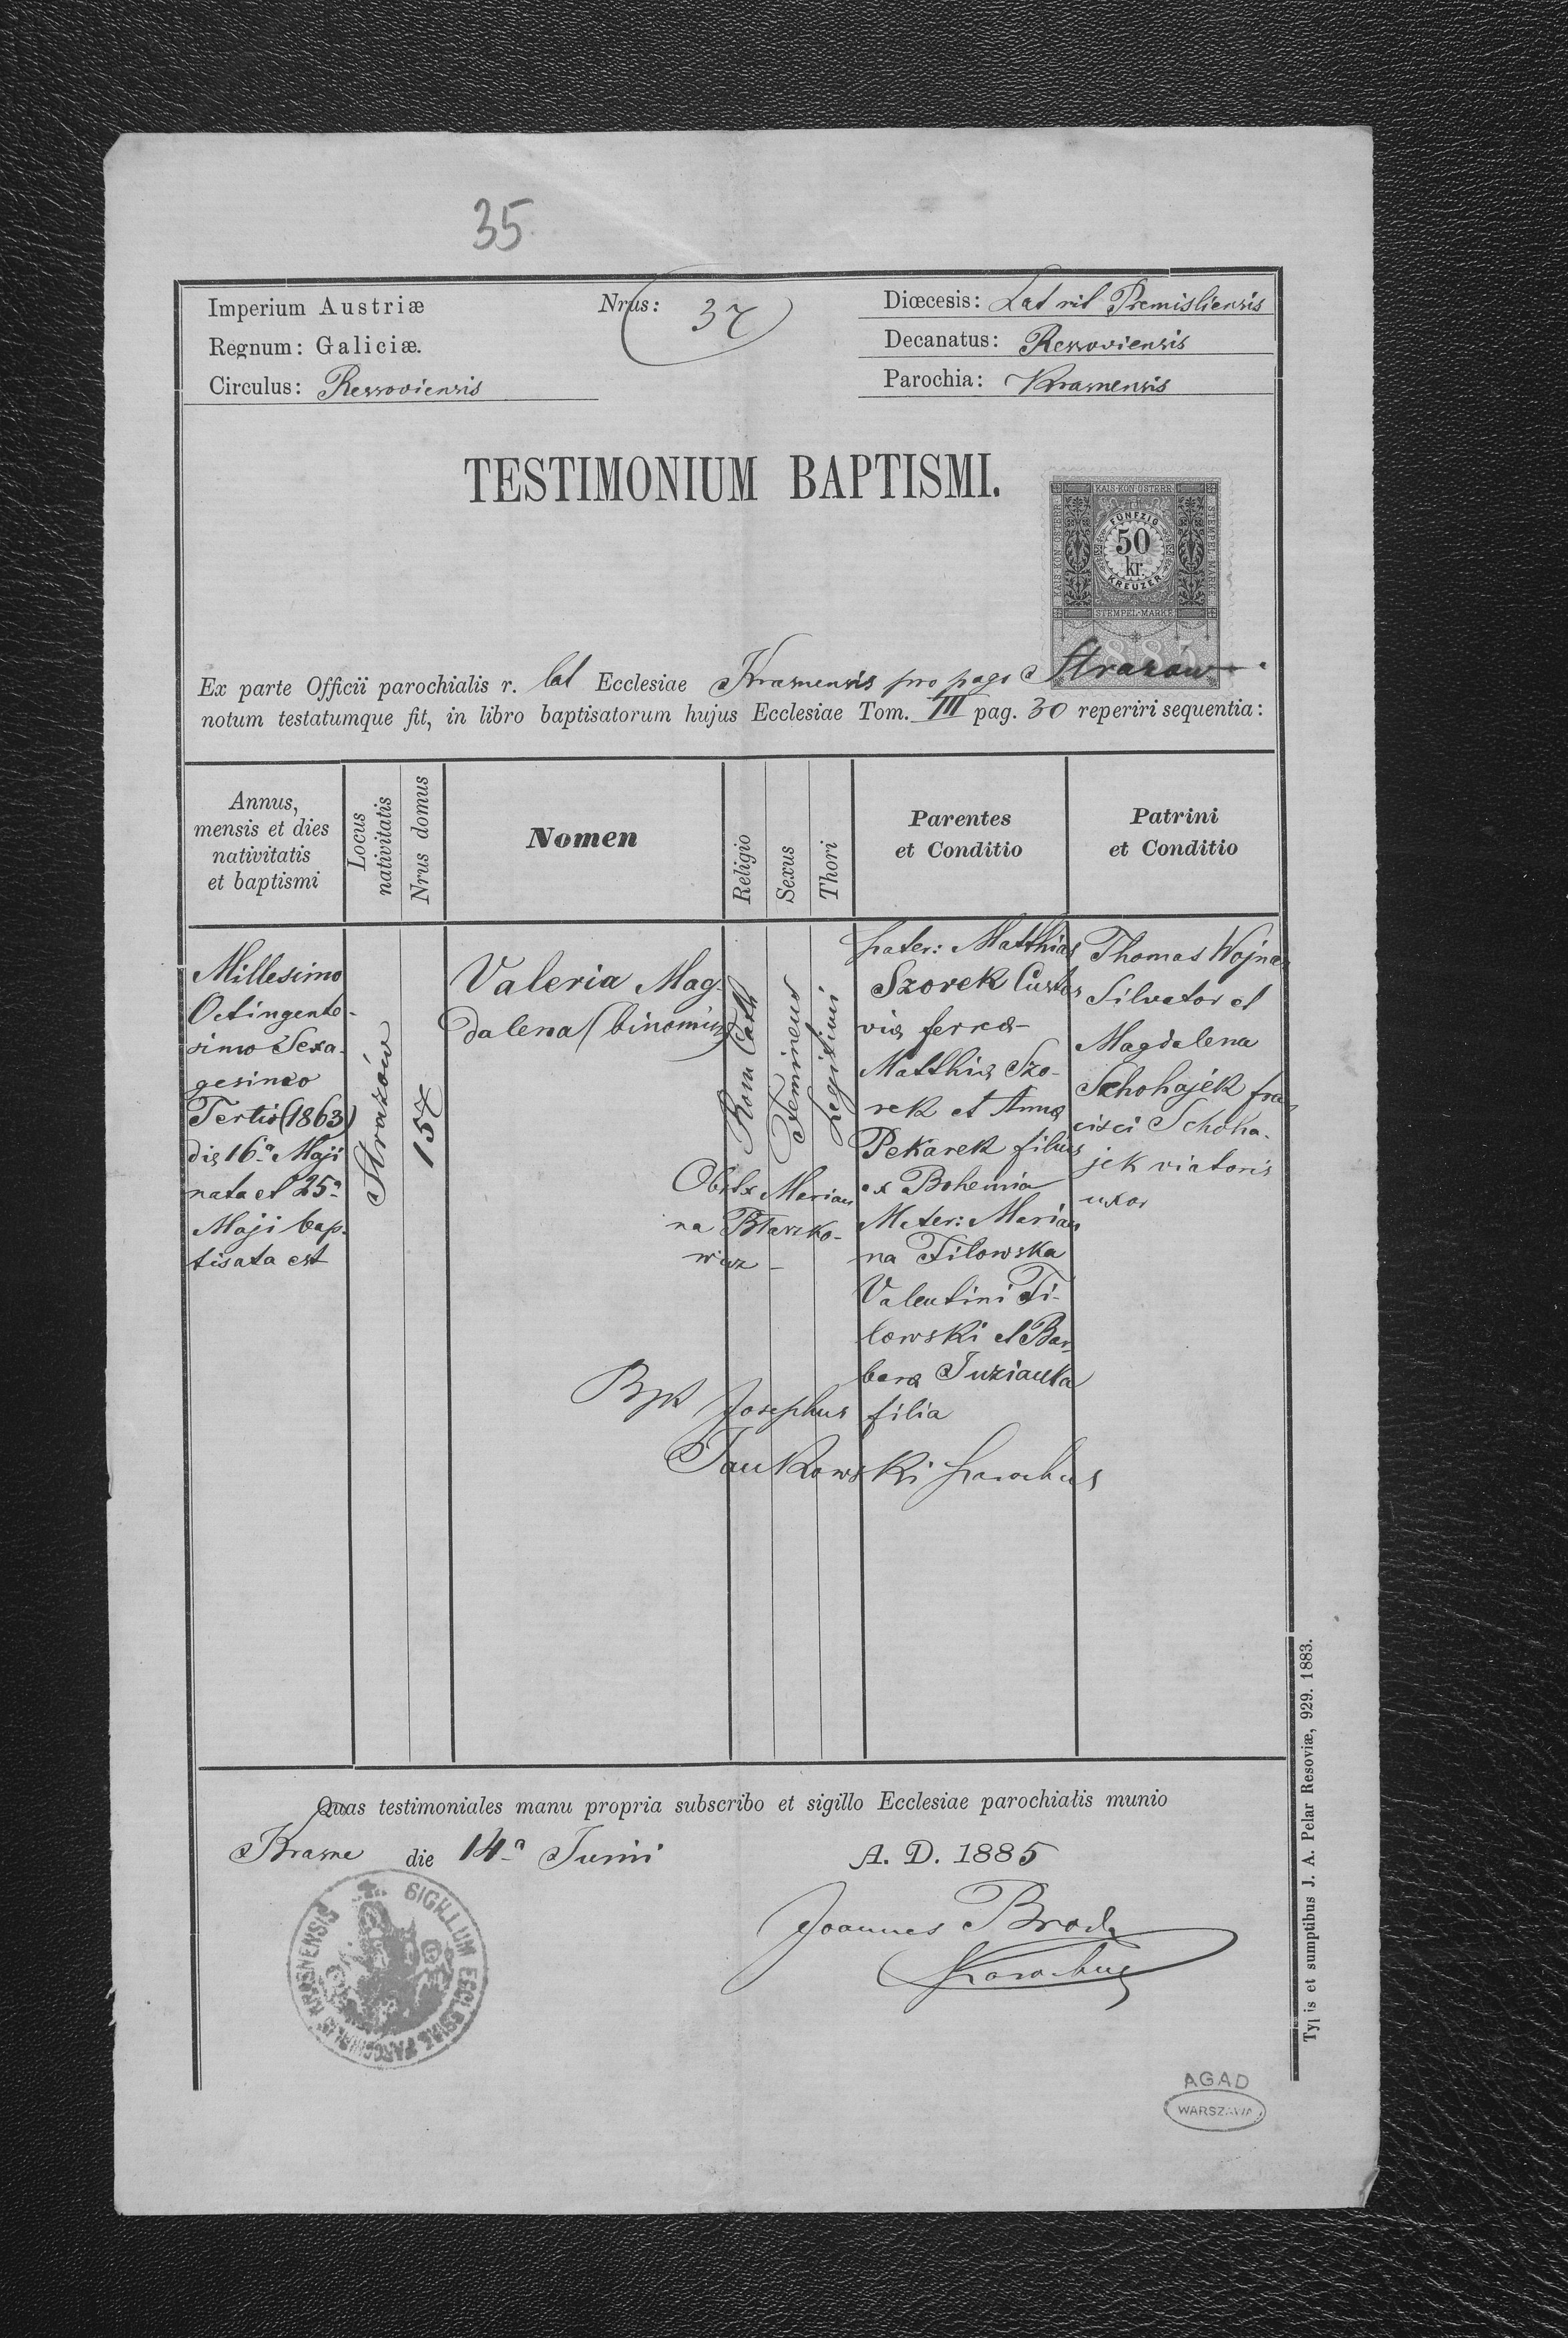 35
Imperium Austriæ
Nrus: 37
Diœcesis: Lat rit Premisliensis
Regnum: Galiciæ.
Decanatus: Ressoviensis
Circulus: Ressoviensis
Parochia: Krasnensis
TESTIMONIUM BAPTISMI.
KAIS·KÖN·ÖSTERR·
KAIS·KÖN·ÖSTERR·
STEMPEL-MARKE
FÜNFZIG
50
kr.
KREUZER
STEMPEL-MARKE
1883
Ex parte Officii parochialis r. lat Ecclesiae Krasnensis pro pago Strazow
notum testatumque fit, in libro baptisatorum hujus Ecclesiae Tom. III pag. 30 reperiri sequentia:
Annus,
mensis et dies
nativitatis
et baptismi
Locus
nativitatis
Nrus domus
Nomen
Religio
Sexus
Thori
Parentes
et Conditio
Patrini
et Conditio
Millesimo
Octingente-
simo Sexa-
gesimo
Tertio (1863)
die 16ª Maji
nata et 25ª
Maji bap-
tisata est
Strazów
157
Valeria Mag-
dalena (binomin)
Rom Cath
Femineus
Legitimi
Obstx Marian
na Błaszko-
wicz -
pater: Matthias
Szorek Custos
viæ ferreæ-
Matthiæ Szo-
rek et Annæ
Pekarek filius
ex Bohemia
Mater: Marian
na Tilowska
Valentini Ti-
lowski et Bar
baræ Juzianka
filia
Thomas Wojnar
Silvator et
Magdalena
Schohajek fran
cisci Schoha-
jek viatoris
uxor
Bpt Josephus
Jankowski parochus
Quas testimoniales manu propria subscribo et sigillo Ecclesiae parochialis munio
Krasne die 14ª Junii A. D. 1885
Joannes Broda
Parochus
SIGILLUM ECCLESIAE PAROCHIALIS KRASNENSIS
Typis et sumptibus J. A. Pelar Resoviæ, 929. 1883.
AGAD
WARSZAWA